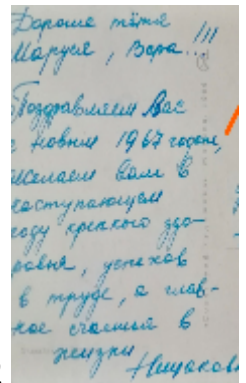 Дорогие тётя
Маруся, Вера...!!!
Поздравляем Вас
с новым 1967 годом,
желаем Вам в
наступающем
году крепкого здо-
ровья, успехов
в труде, а глав-
ное счастья в
жизни